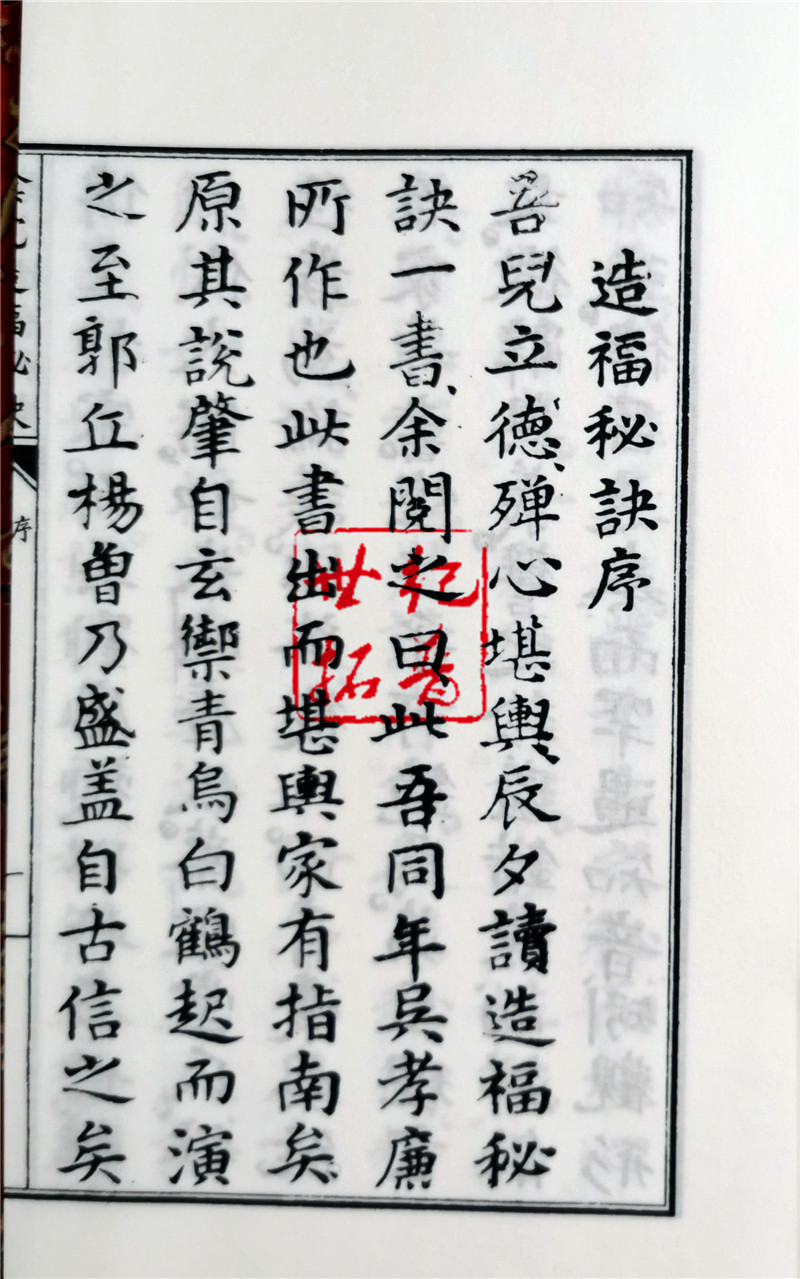 造福秘訣序
吾兒立德殫心堪輿辰夕讀造福秘
訣一書余閱之曰此吾同年吳孝廉
所作也此書出而堪輿家有指南矣
原其說肇自玄禦青烏白鶴起而演
之至郭丘楊曾乃盛盖自古信之矣
福秘
序
世紀
拓普